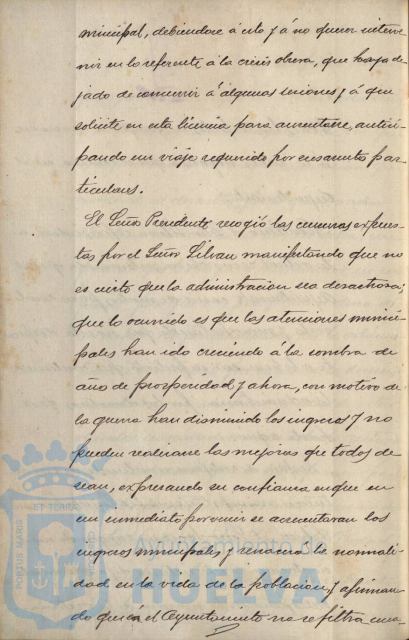 municipal, debiendose á esto y á no querer interve-
nir en lo referente á la crisis obrera, que haya de-
jado de concurrir á algunas sesiones y á que
solicite en esta licencia para ausentarse, antici-
pando un viaje requerido por sus asuntos par-
ticulares.
El Señor Presidente recogió las censuras expues-
tas por el Señor Silvan manifestando que no
es cierto que la administración sea desastrosa;
que lo ocurrido es que las atenciones munici-
pales han ido creciendo á la sombra de
año de prosperidad y ahora, con motivo de
la guerra han disminuido los ingresos y no
pueden realizarse las mejoras que todos de-
sean, expresando su confianza en que en
un inmediato porvenir se acrecentaran los
ingresos municipales y renacerá la normali-
dad en la vida de la población, y afirman-
do que en el Ayuntamiento no se filtra una
PORTUS MARIS ET TERRAE
Ayuntamiento de
HUELVA